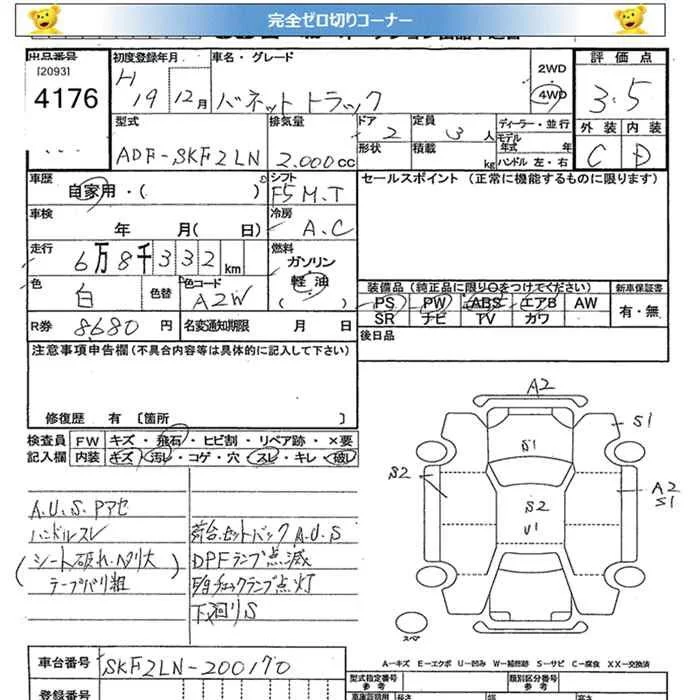 完全ゼロ切りコーナー
出品番号 初度登録年月 車名・グレード 評価点
[2093]
4176
H 19年 12月 バネットトラック 2WD 4WD 3.5
外装 内装
C D
型式 排気量 ドア 定員 ディーラー・並行
ADF-SKF2LN 2.000cc 2 3人 モデル年式 年
形状 積載 kg ハンドル 左・右
車歴 シフト セールスポイント (正常に機能するものに限ります)
自家用・( ) F5 M.T
車検 冷房
年 月( 日) A.C
走行 燃料
6万8千332km ガソリン
軽油
( )
色 色替 色コード
白 A2W
装備品(純正品に限り○をつけてください) 新車保証書
PS PW ABS エアB AW 有・無
SR ナビ TV カワ
R券 8680円 名変通知期限 月 日
後日品
注意事項申告欄(不具合内容等は具体的に記入して下さい)
修復歴 有 〔箇所 〕
検査員 FW キズ・飛石・ヒビ割・リペア跡・×要
記入欄 内装 キズ・汚レ・コゲ・穴・スレ・キレ・破レ
A.U.S.Pアセ
ハンドルスレ
(シート破れ・ヘタリ大
テープバリ粗)
荷台.セットバック A.U.S
DPFランプ点滅
チェックランプ点灯
下廻りS
A2
S1
S1
S2
A2
S1
S2
U1
スペア
A―キズ E―エクボ U―凹み W―補修跡 S―サビ C―腐食 XX―交換済
車台番号 SKF2LN-200170
型式指定番号 類別区分番号
参考 参考
登録番号
長さ 幅 高さ